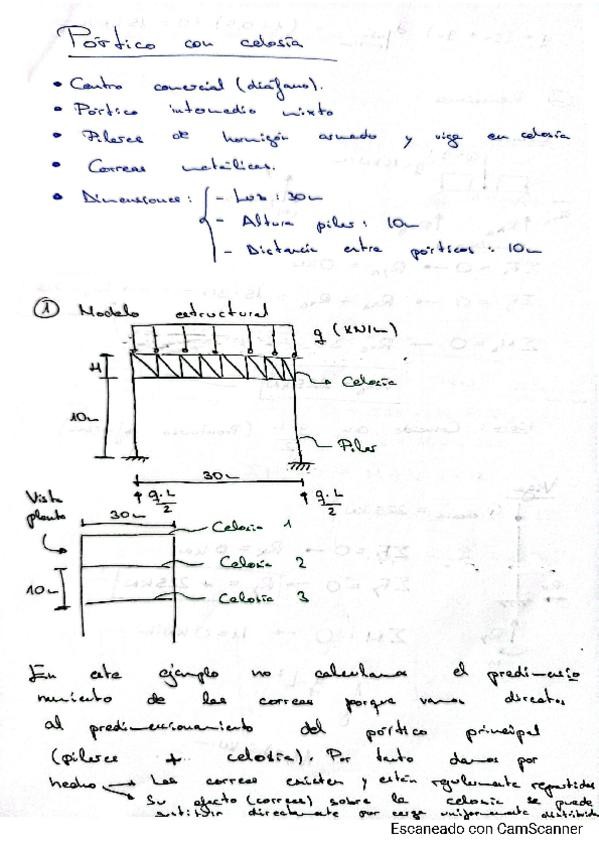 Pórtico con celosía
• Centro comercial (diáfano).
• Pórtico intermedio mixto
• Pilares de hormigón armado y viga en celosía
• Correas metálicas.
• Dimensiones: - Luz: 30m
- Altura pilar: 10m
- Distancia entre pórticos: 10m
① Modelo estructural
q (kN/m)
H
Celosía
10m
Pilar
30m
q·L/2
q·L/2
Vista planta
30m
Celosía 1
Celosía 2
10m
Celosía 3
En este ejemplo no calculamos el predimensio
namiento de las correas porque vamos directos
al predimensionamiento del pórtico principal
(pilares + celosía). Por tanto damos por
hecho → Las correas existen y están regularmente repartidas
→ Su efecto (correas) sobre la celosía se puede
sustituir directamente por carga uniformemente distribuida
Escaneado con CamScanner